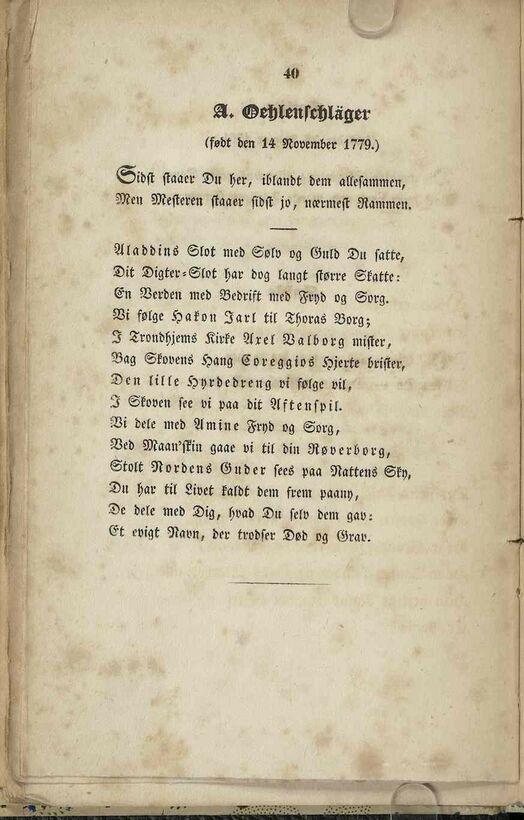 40
A. Oehlenschläger
(født den 14 November 1779.)
Sidst staaer Du her, iblandt dem allesammen,
Men Mesteren staaer sidst jo, nærmest Rammen.
Aladdins Slot med Sølv og Guld Du satte,
Dit Digter-Slot har dog langt større Skatte:
En Verden med Bedrift med Fryd og Sorg.
Vi følge Hakon Jarl til Thoras Borg;
I Trondhjems Kirke Axel Valborg mister,
Bag Skovens Hang Coreggios Hjerte brister,
Den lille Hyrdedreng vi følge vil,
I Skoven see vi paa dit Aftenspil.
Vi dele med Amine Fryd og Sorg,
Ved Maan'skin gaae vi til din Røverborg,
Stolt Nordens Guder sees paa Nattens Sky,
Du har til Livet kaldt dem frem paany,
De dele med Dig, hvad Du selv dem gav:
Et evigt Navn, der trodser Død og Grav.